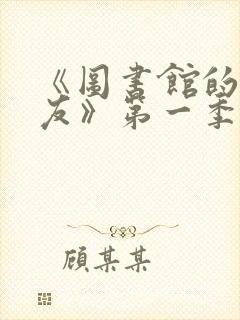 《圖書館的
友》第一季
顧某某